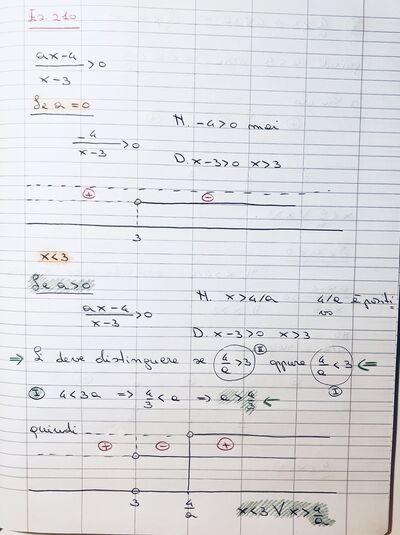 Es. 210
ax-4/x-3 >0
Se a=0
-4/x-3 >0
N. -4>0 mai
D. x-3>0 x>3
+ -
3
x<3
Se a>0
ax-4/x-3 >0
N. x>4/a 4/a è positi-
vo
D. x-3>0 x>3
⇒ Si deve distinguere se 4/a >3 II oppure 4/a <3 I ⇐
I 4<3a ⇒ 4/3 <a ⇒ a> 4/3 ←
quindi
+ - +
3 4/a
x<3 V x> 4/a